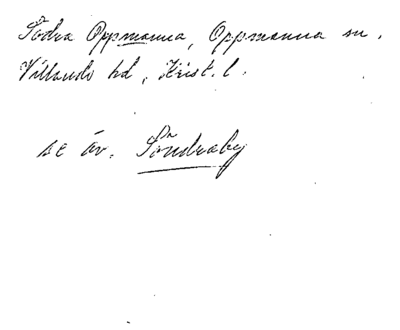 Södra Oppmanna, Oppmanna sn.
Villands hd, Krist. l.
se äv. Söndraby